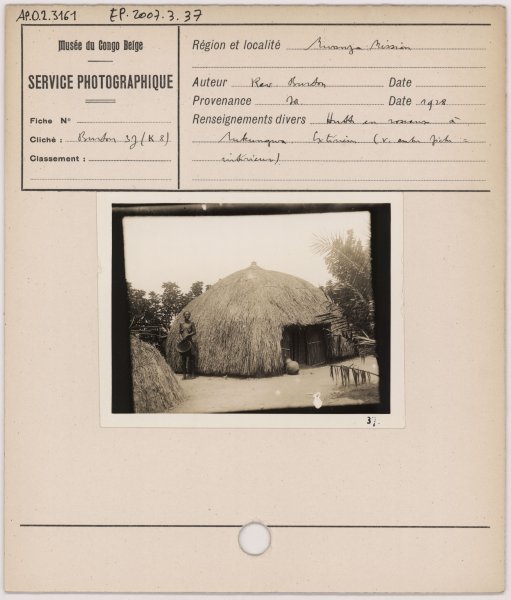 AP.0.2.3161 EP.2007.3.37
Musée du Congo Belge
SERVICE PHOTOGRAPHIQUE
Fiche N°
Cliché : Burton 37 (K 8)
Classement :
Région et localité Mwanza Mission
Auteur Rev. Burton Date
Provenance Id Date 1928
Renseignements divers Hutte en roseaux à
Extérieur (v. autre fiche =
intérieur)
37.